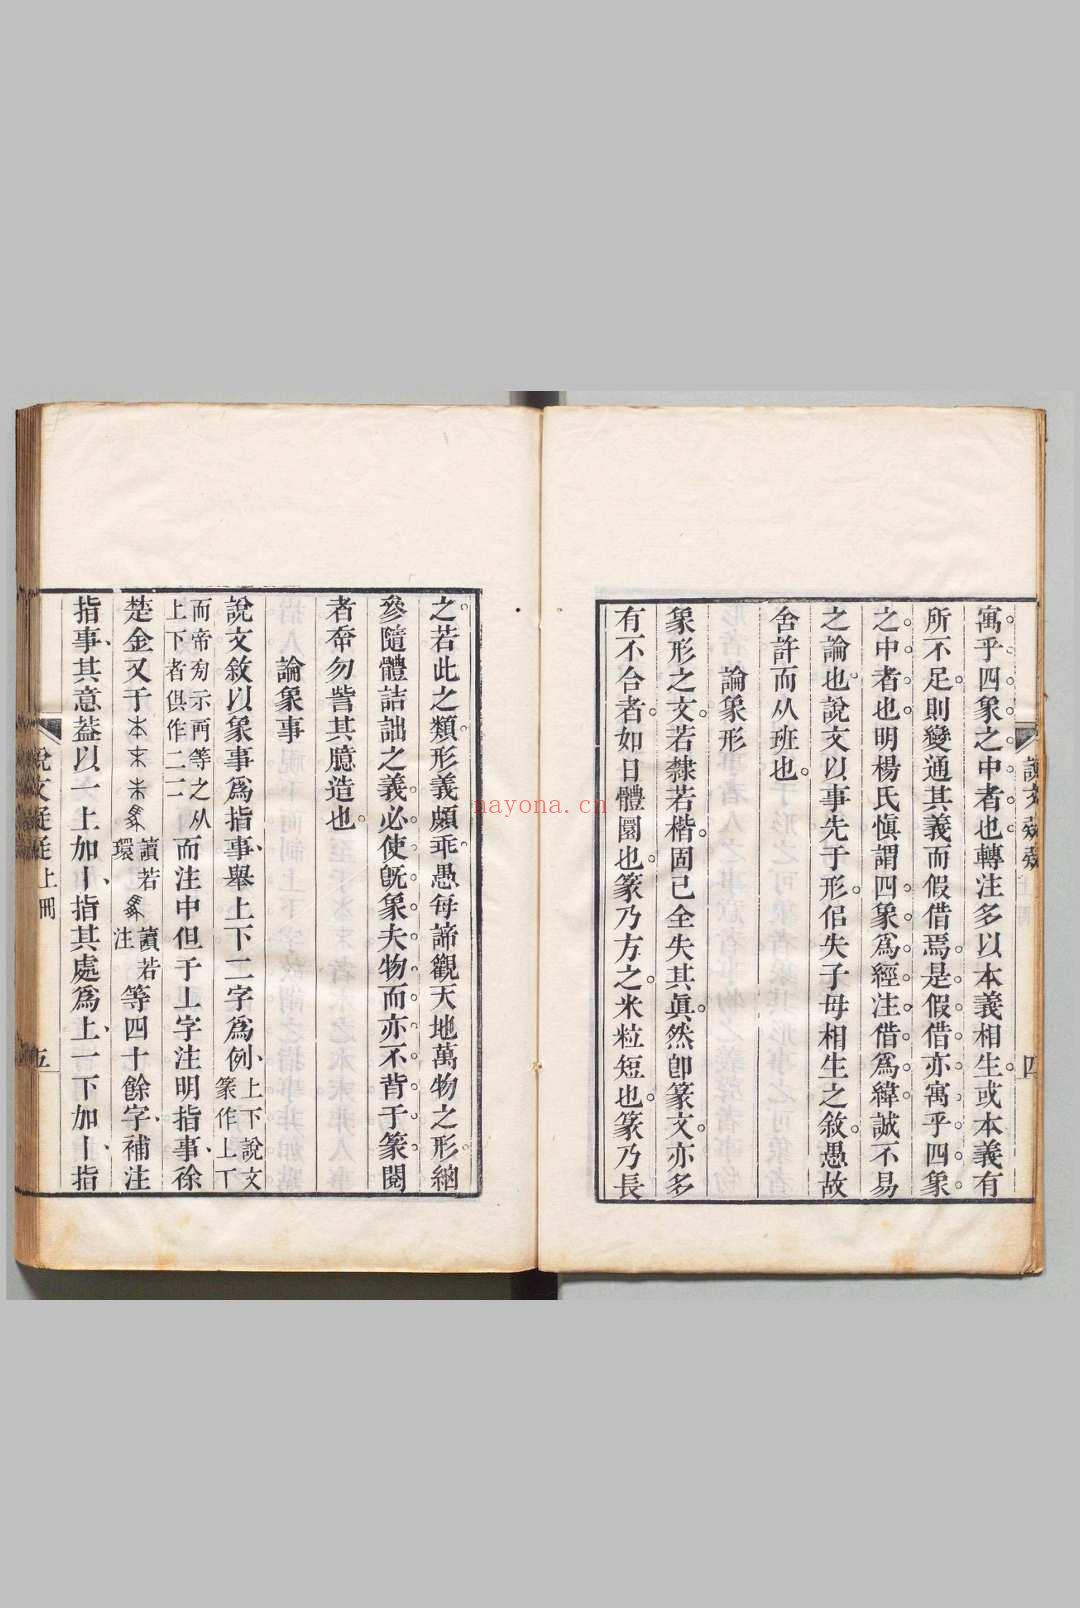 寓乎四象之中者也轉注多以本義相生或本義有
所不足則變通其義而假借焉是假借亦寓乎四象
之中者也明楊氏愼謂四象爲經注借爲緯誠不易
之論也說文以事先于形侣失子母相生之敘愚故
舍許而从班也
論象形
象形之文若隸若楷固已全失其眞然卽篆文亦多
有不合者如日體圜也篆乃方之米粒短也篆乃長
說文
四
之若此之類形義頗乖愚每諦觀天地萬物之形緫
參隨體詰詘之義必使旣象夫物而亦不背于篆閱
者㚏勿訾其臆造也
論象事
說文敘以象事爲指事舉上下二字爲例上下說文
篆作丄丅
而帝旁示兩等之从
上下者俱作二二而注中但于丄字注明指事徐
楚金又于本末朱
讀若
環
讀若
注
等四十餘字補注
指事其意葢以一上加丨指其處爲上一下加丨指
說文
上冊
五
nayona.cn